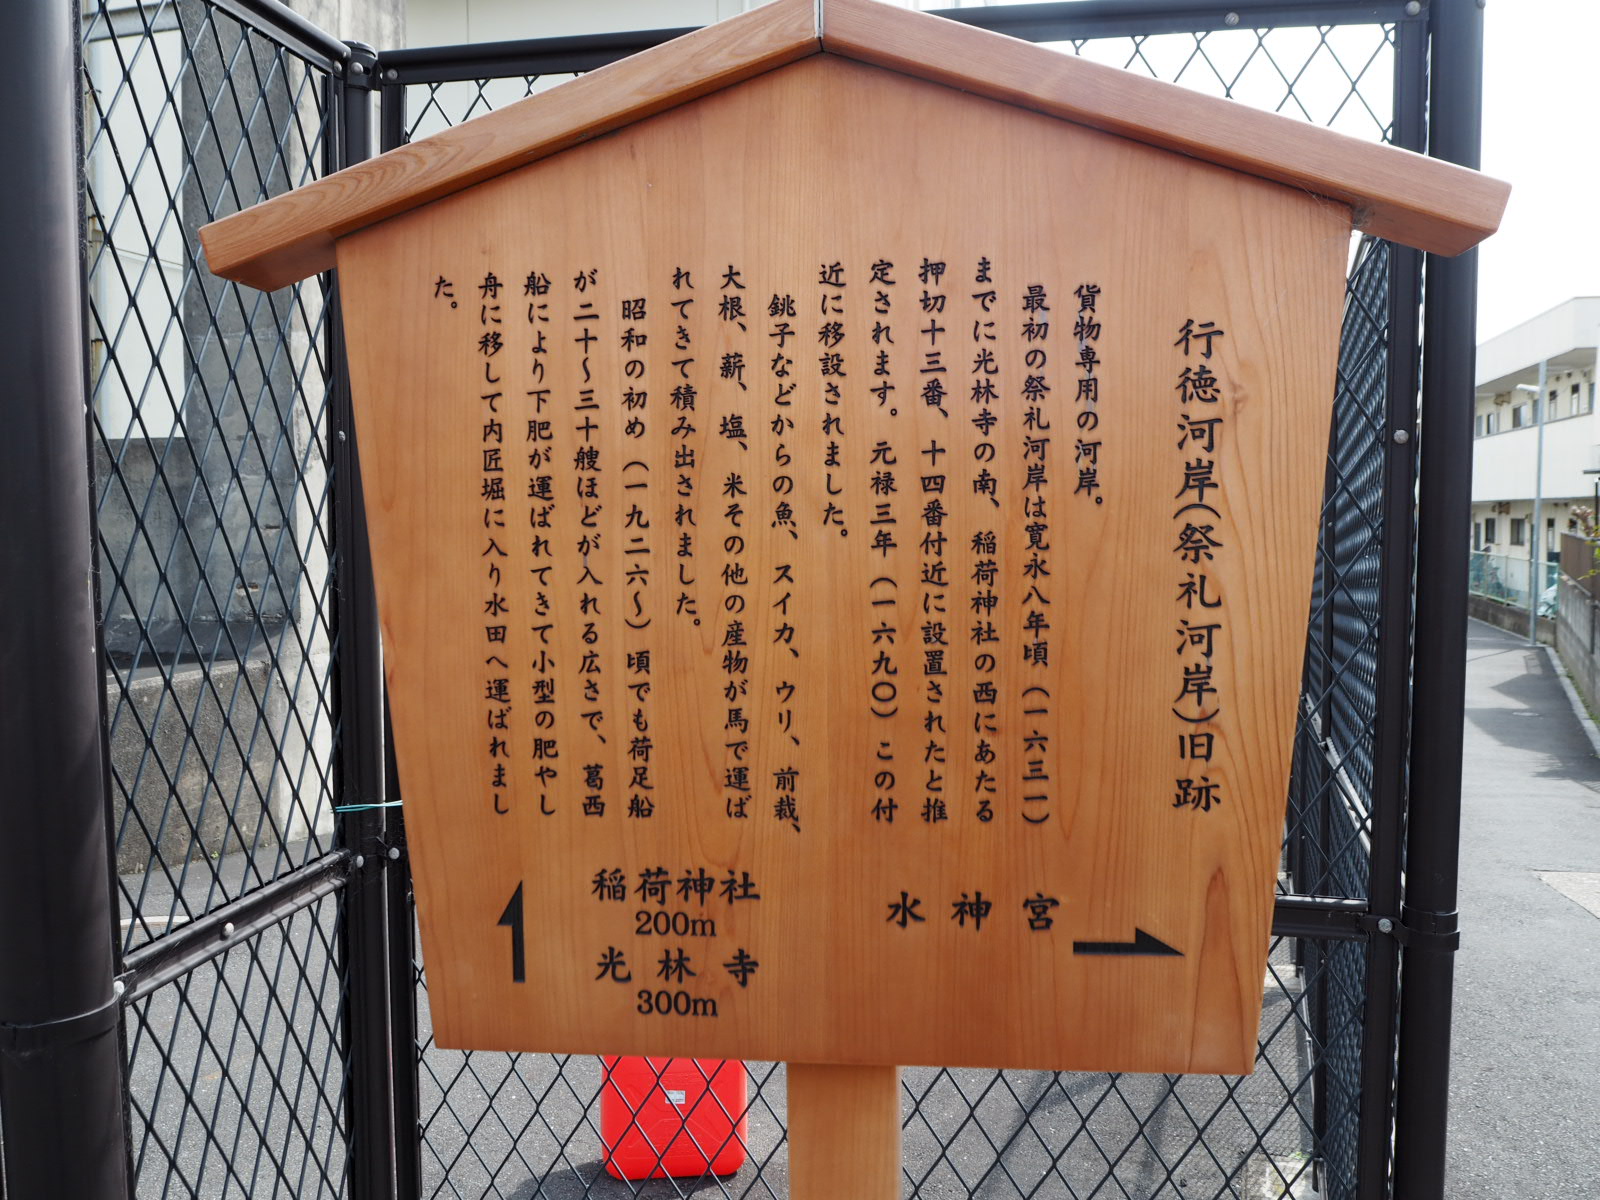 行徳河岸(祭礼河岸)旧跡
貨物専用の河岸。
最初の祭礼河岸は寛永八年頃(一六三一)
までに光林寺の南、稲荷神社の西にあたる
押切十三番、十四番付近に設置されたと推
定されます。元禄三年(一六九〇)この付
近に移設されました。
銚子などからの魚、スイカ、ウリ、前裁、
大根、薪、塩、米その他の産物が馬で運ば
れてきて積み出されました。
昭和の初め(一九二六〜)頃でも荷足船
が二十〜三十艘ほどが入れる広さで、葛西
船により下肥が運ばれてきて小型の肥やし
舟に移して内匠堀に入り水田へ運ばれまし
た。
水神宮
稲荷神社
200m
光林寺
300m